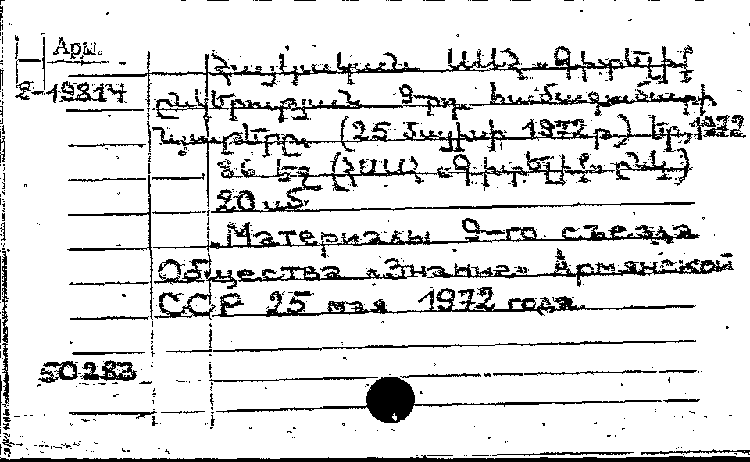 Арм.
Հայկական ՍՍՀ «Գիտելիք»
2-19814
ընկերության 9-րդ համագումարի
նյութերը (25 մայիսի 1972 թ.) Եր., 1972
86 եջ (ՀՍՍՀ «Գիտելիք» ընկ.)
20 սմ
Материалы 9-го съезда
Общества «Знание» Армянской
ССР 25 мая 1972 года.
50283